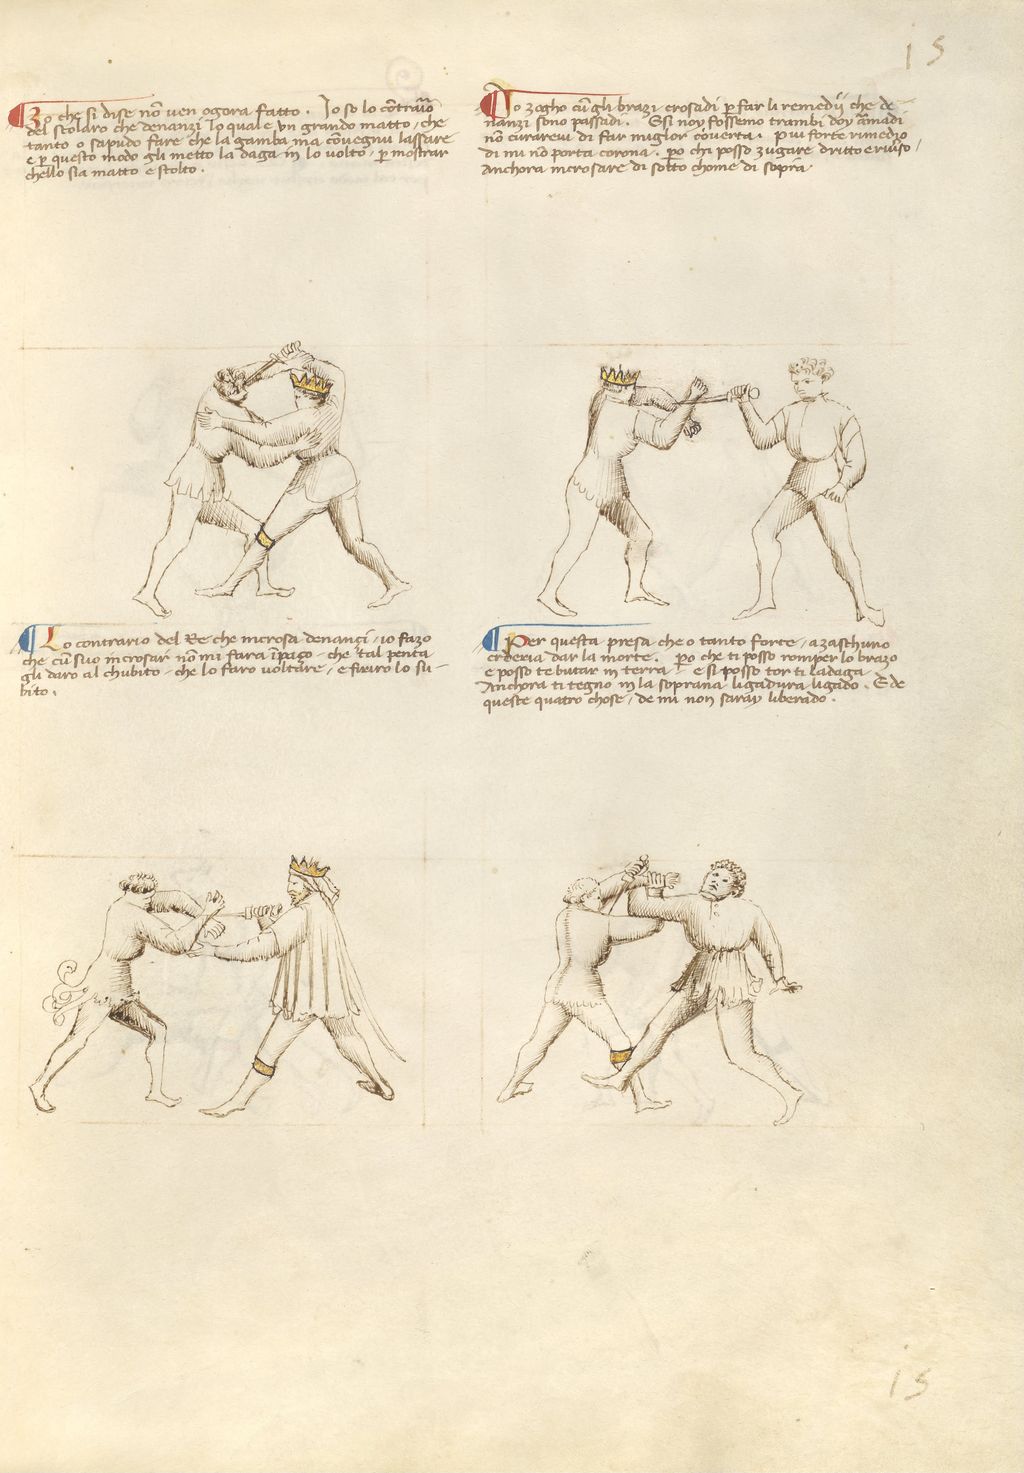 15
Zo che si dise nõ ven ogora fatto. Io so lo cõtrario
del scolaro che denanzi lo quale un grando matto, che
tanto o sapudo fare che la gamba ma cõvegnu lassare
e p questo modo gli metto la daga in lo volto, p mostrar
chello sia matto e stolto.
Io zogho cũ gli brazi crosadi p far li remedii che de-
nanzi sono passadi. E si noy fossemo trambi doy armadi
nõ curarevi di far miglor coverta. Piu forte rimedio
di mi nõ porta corona. po chi posso zugare dritto e riverso,
Anchora incrosare di sotto chome di sopra
Lo contrario del Re che incrosa denanci, io fazo
che cũ suo incrosar nõ mi fara ĩpazo. che tal penta
gli daro al chubito, che lo faro voltare, e feriro lo su-
bito.
Per questa presa che o tanto forte, a zaschuno
crderia dar la morte. po che ti posso romper lo brazo
e posso te butar in terra, e si posso tor ti la daga.
Anchora ti tegno in la soprana ligadura ligado. E de
queste quatro chose, de mi non saray liberado.
15